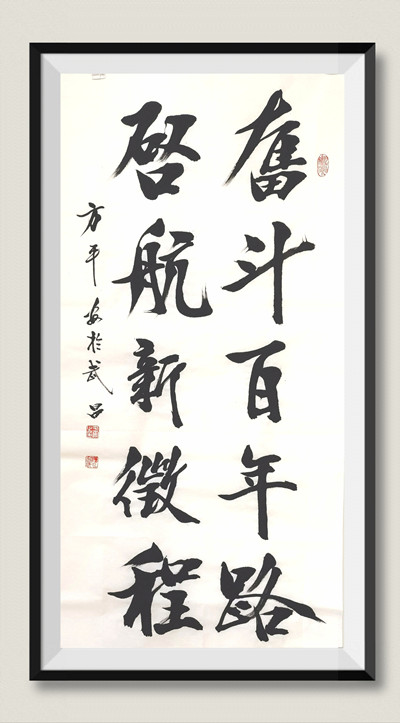 奮斗百年路
啓航新徵程
方平 書於武昌